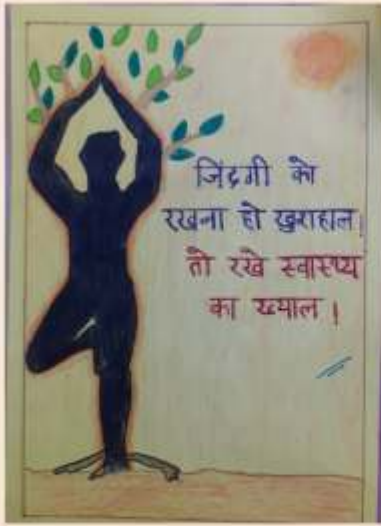 जिंदगी को
रखना हो खुशहाल!
तो रखे स्वास्थ्य
का ख्याल !